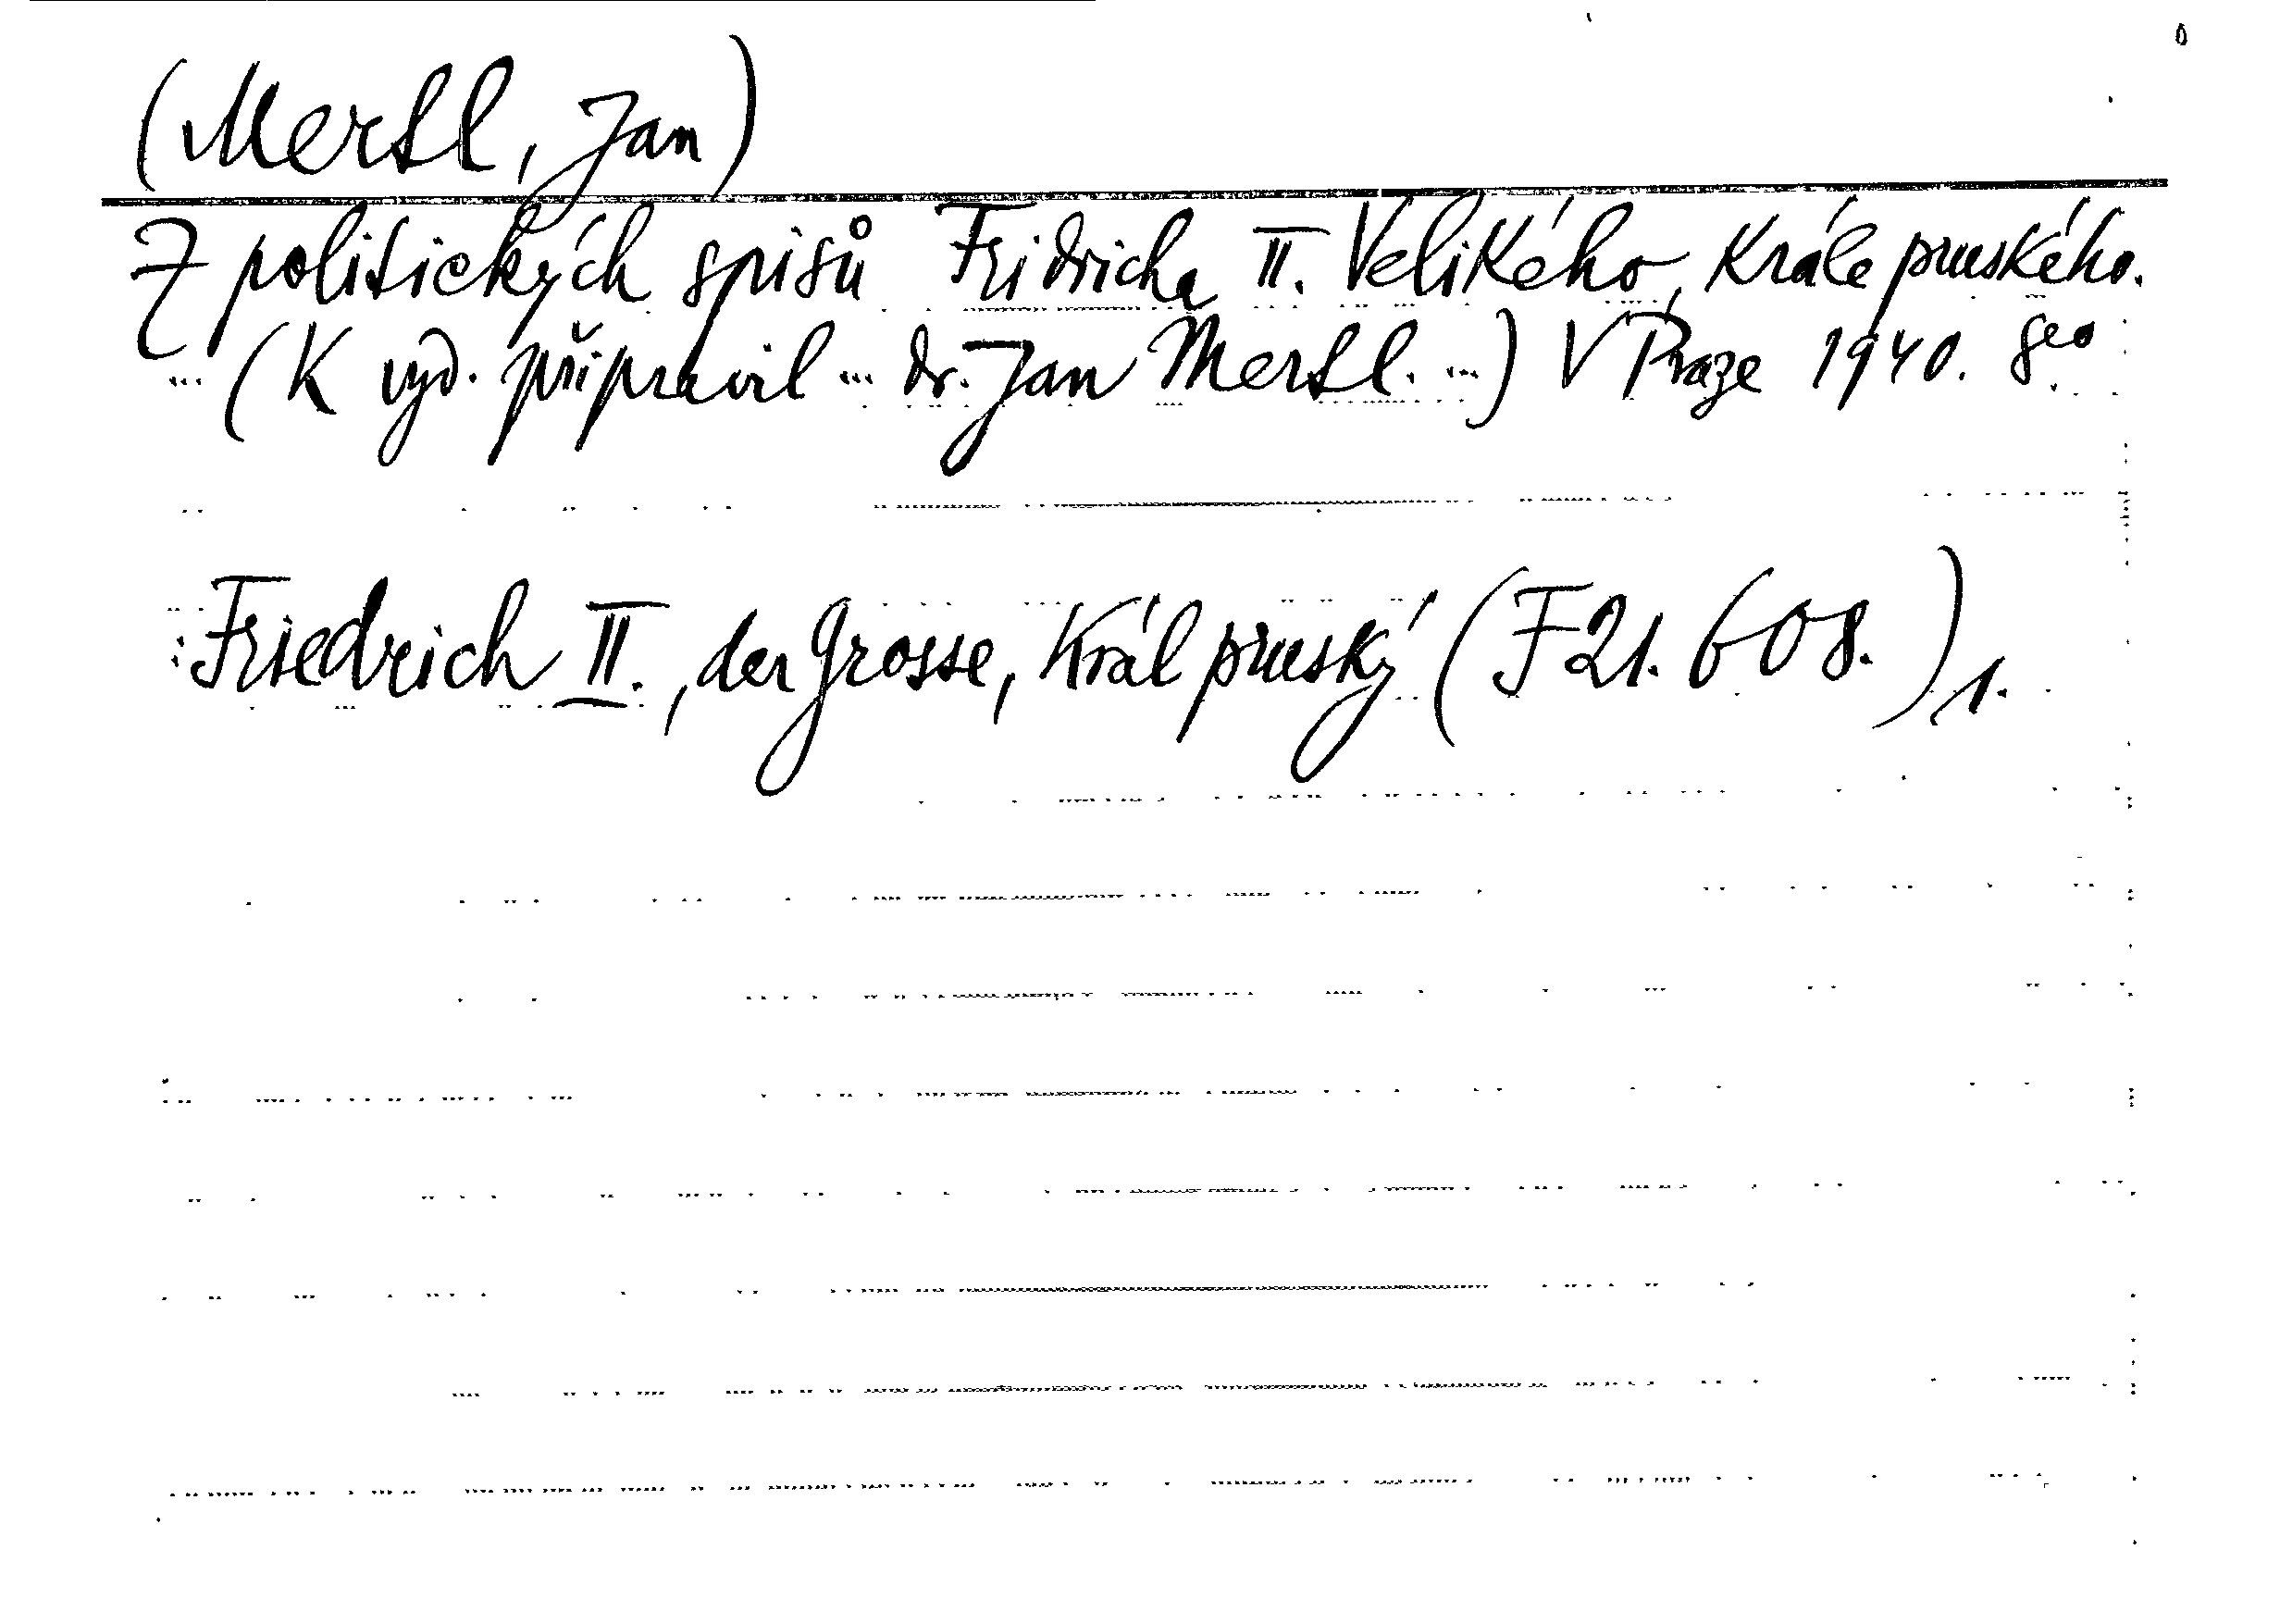 (Mertl, Jan)
Z politických spisů Fridricha II. Velikého, krále pruského.
(K vyd. připravil ... dr. Jan Mertl. ...) V Praze 1940. 8°
Friedrich II., der Grosse, král pruský (F 21.608.) 1.